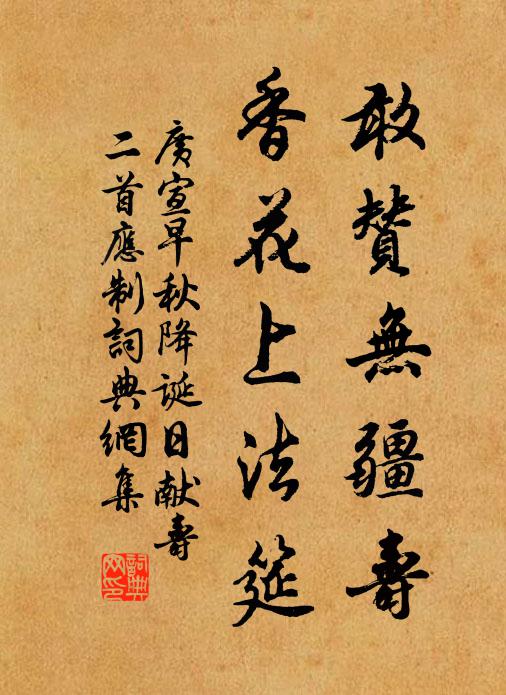 敢贊無疆壽
香花上法筵
廣宣早秋降誕日献壽
二首應制詞典網集
詞典
网印